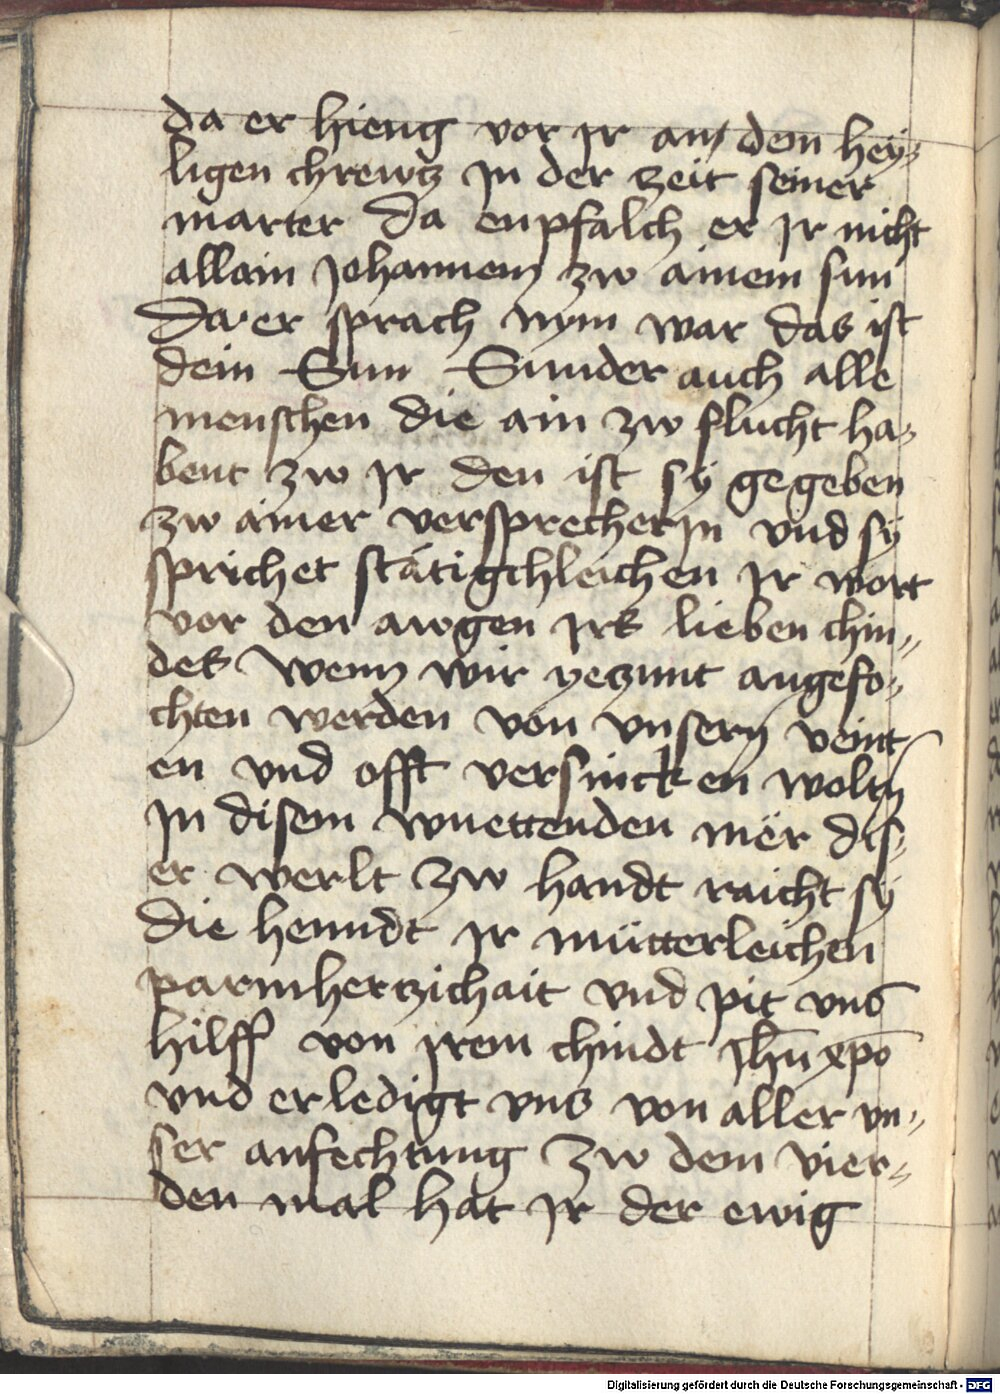 da er hieng vor ir an dem hey-
ligen chrewtz in der zeit seiner
marter Da enpfalch er ir nicht
allain Johannem zw ainem sun
Da er sprach nym war das ist
dein Sun Sunder auch alle
menschen die ain zw flucht ha-
bent zw ir den ist sy gegeben
zw ainer versprecherin vnd sy
sprichet stätigchleichen ir wort
vor den awgen irs lieben chin-
des Wenn wir yezunt angefo-
chten werden von vnsern veint
en vnd offt versincken woltn
in disem wuettenden mër dis-
er werlt Zw handt raicht sy
die henndt ir mütterleichen
parmherzichait vnd pit vns
hilff von irem chindt Jhu xpo
vnd erledigt vns von aller vn-
ser anfechtung Zw dem vier-
den mal hat ir der ewig
Digitalisierung gefördert durch die Deutsche Forschungsgemeinschaft - DFG